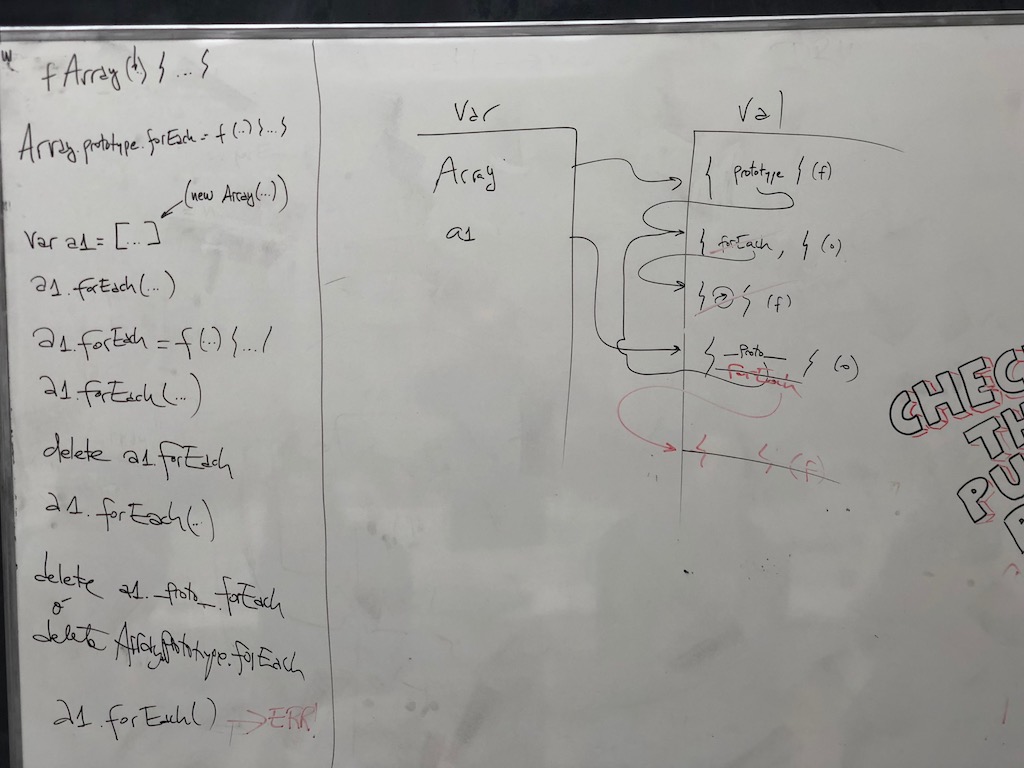 f Array() { ... }
Array.prototype.forEach = f(..) {...}
(new Array(...))
Var a1 = [...]
a1.forEach(...)
a1.forEach = f(..) {.../
a1.forEach(...)
delete a1.forEach
a1.forEach(..)
delete a1.__proto__.forEach
o
delete Array.Prototype.forEach
a1.forEach() → ERR!
Var
Array
a1
Val
{ prototype } (f)
{ forEach, } (o)
{ } (f)
{ __proto__ } (o)
forEach
{ } (f)
CHEC
TH
PU